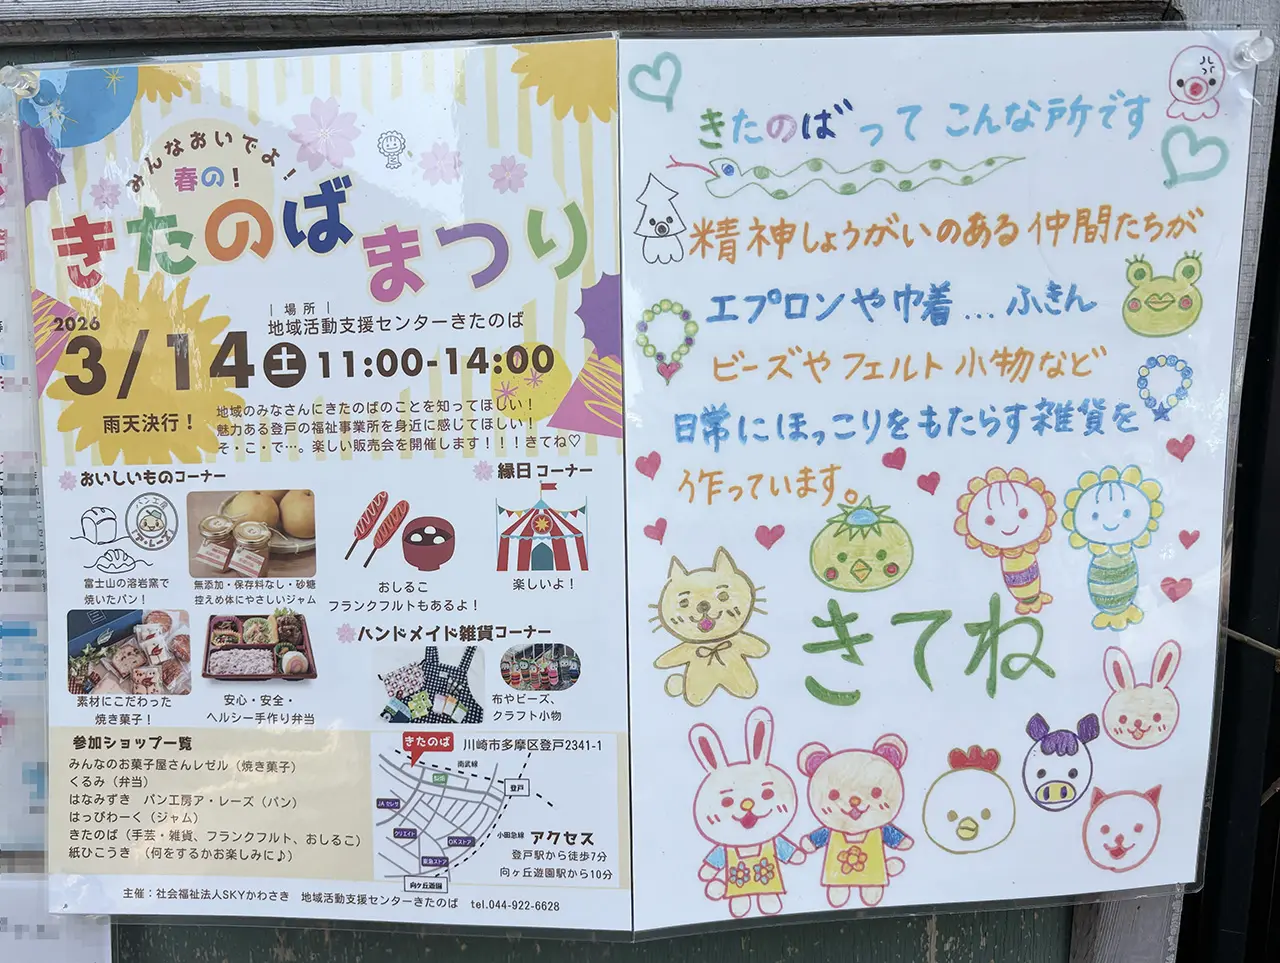 みんなおいでよ！
春の！
きたのば
まつり
2026
3/14土11:00-14:00
| 場所 |
地域活動支援センターきたのば
雨天決行！
地域のみなさんにきたのばのことを知ってほしい！
魅力ある登戸の福祉事業所を身近に感じてほしい！
そ・こ・で…。楽しい販売会を開催します！！！きてね♡
おいしいものコーナー
パン工房
ア・レーズ
富士山の溶岩窯で
焼いたパン！
無添加・保存料なし・砂糖
控えめ体にやさしいジャム
おしるこ
フランクフルトもあるよ！
縁日コーナー
楽しいよ！
素材にこだわった
焼き菓子！
安心・安全・
ヘルシー手作り弁当
ハンドメイド雑貨コーナー
布やビーズ、
クラフト小物
参加ショップ一覧
みんなのお菓子屋さんレゼル（焼き菓子）
くるみ（弁当）
はなみずき　パン工房ア・レーズ（パン）
はっぴわーく（ジャム）
きたのば（手芸・雑貨、フランクフルト、おしるこ）
紙ひこうき　（何をするかお楽しみに♪）
きたのば
川崎市多摩区登戸2341-1
南武線
登戸
JAセレサ
クリエイト
OKストア
東急ストア
小田急線
向ヶ丘遊園
アクセス
登戸駅から徒歩7分
向ヶ丘遊園駅から10分
主催：社会福祉法人SKYかわさき　地域活動支援センターきたのば　tel.044-922-6628
きたのばってこんな所です
精神しょうがいのある仲間たちが
エプロンや巾着…ふきん
ビーズやフェルト小物など
日常にほっこりをもたらす雑貨を
作っています。
きてね